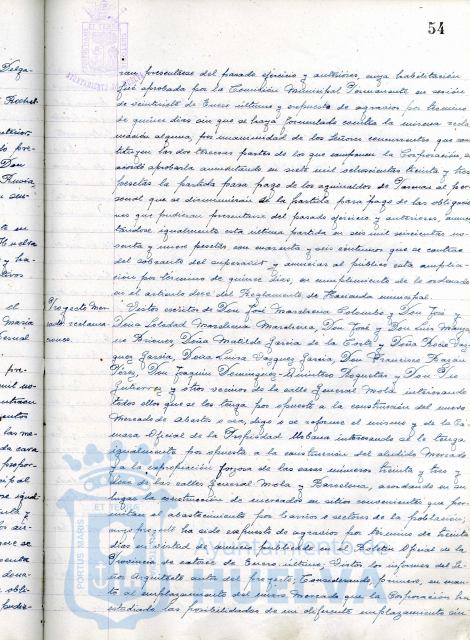 54
ran presentarse del pasado ejercicio y anteriores, cuya habilitación
fué aprobada por la Comisión Municipal Permanente en sesión
de veintisiete de Enero último y expuesto de agravios por término
de quince días sin que se haya formulado contra la misma recla
mación alguna, por unanimidad de los Señores concurrentes que cons
tituyen las dos terceras partes de los que componen la Corporación, se
acordó aprobarla aumentando en siete mil setecientas treinta y tres
pesetas la partida para pago de los aguinaldos de Pascuas al per
sonal que se disminuirán de la partida para pago de las obligacio
nes que pudieran presentarse del pasado ejercicio y anteriores, aumen
tándose igualmente esta última partida en seis mil seiscientas no
venta y unos pesetas con cuarenta y seis céntimos que se contrae
del sobrante del superavit y anunciar al público esta amplia
ción por término de quince días, en cumplimiento de lo ordenado
en el artículo doce del Reglamento de Hacienda municipal.
Proyecto Mer
cado reclama
ciones.
Vistos escritos de Don José Marchena Colombo y Don José y
Doña Soledad Marchena Marchena, Don José y Don Luis Manza
no Briones, Doña Matilde García de la Corte y Doña Rocío Vaz
quez García, Doña Luisa Vazquez García, Don Francisco Bazán
Pérez, Don Joaquín Dominguez-Quintero Roqueta y Don Pio
Gutierrez y otros vecinos de la calle General Mola, interesando
todos ellos que se les tenga por opuesto a la construcción del nuevo
Mercado de Abastos o sea, digo se reforme el mismo y de la Cá
mara Oficial de la Propiedad Urbana interesando se le tenga
igualmente por opuesto a la construcción del aludido Mercado
y a la expropiación forzosa de las casas números treinta y tres y
de las calles General Mola y Barcelona, acordando en su
lugar la construcción de mercados en sitios convenientes que per
mitan el abastecimiento por barrios o sectores de la población,
cuyo proyecto ha sido expuesto de agravios por término de treinta
días en virtud de anuncio publicado en el Boletín Oficial de la
Provincia de catorce de Enero último. Vistos los informes del Se
ñor Arquitecto autor del proyecto; Considerando, primero, en cuan
to al emplazamiento del nuevo Mercado, que la Corporación ha
estudiado las posibilidades de un diferente emplazamiento sin
Ayuntamiento de
HUELVA
PORTUS MARIS